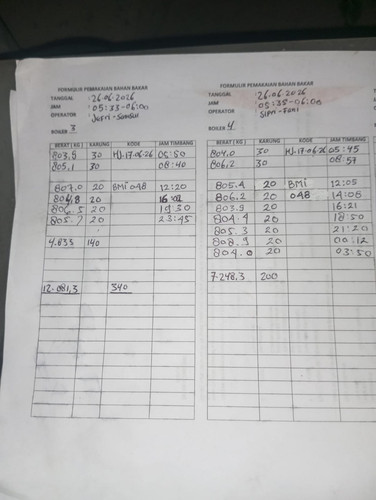 FORMULIR PEMAKAIAN BAHAN BAKAR
TANGGAL : 26.06.2026
JAM : 05:33-06:00
OPERATOR :
BOILER 3
BERAT (KG) KARUNG KODE JAM TIMBANG
803,9 30 HJ.17.06.26 05:50
805,1 30 08:40
804.0 20 BMi 048 12:20
804,8 20
806,5 20 19:30
805.7 20 23:45
4.833 140
12.081,3 340
FORMULIR PEMAKAIAN BAHAN BAKAR
TANGGAL : 26.06.2026
JAM : 05:35-06:00
OPERATOR :
BOILER 4
BERAT (KG) KARUNG KODE JAM TIMBANG
804.0 30 HJ.17.06.26 05:45
806,2 30 08:57
805.4 20 BMi 12:05
806.2 20 048 14:06
803.9 20 16:21
804.4 20 18:50
805.3 20 21:20
808.9 20 00.12
804.0 20 03:50
7.248,3 200